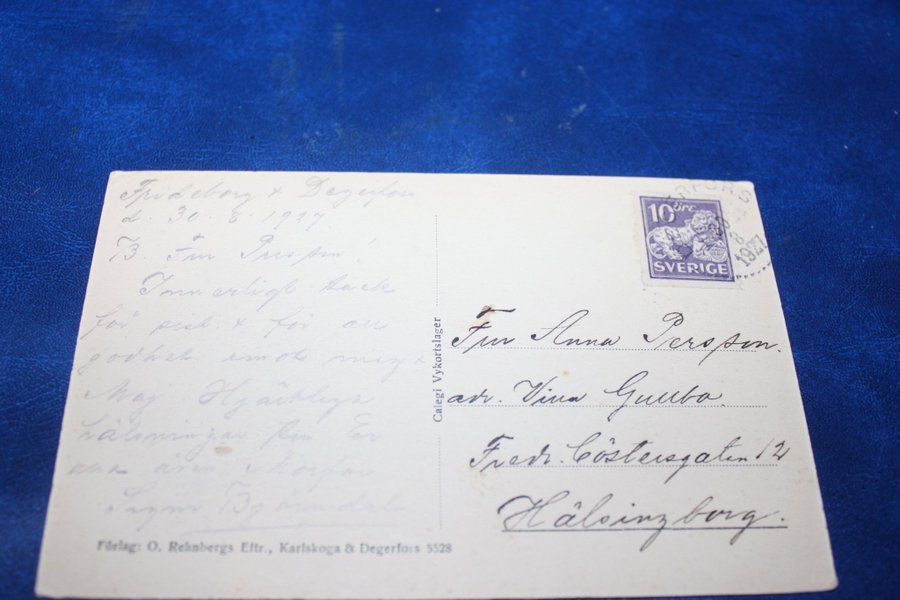 Frideborg & Degerfors
d. 30.8.1927
B. Fru Persson!
Innerligt tack
för sist & för all
godhet emot mig &
Maj. Hjärtliga
hälsningar från Er
Signe Björndal
Förlag: O. Rehnbergs Eftr., Karlskoga & Degerfors 5528
Calegi Vykortslager
10 öre
SVERIGE
1927
Fru Anna Persson.
adr. Viva Gullbo.
Fredr.
12
Hälsingborg.